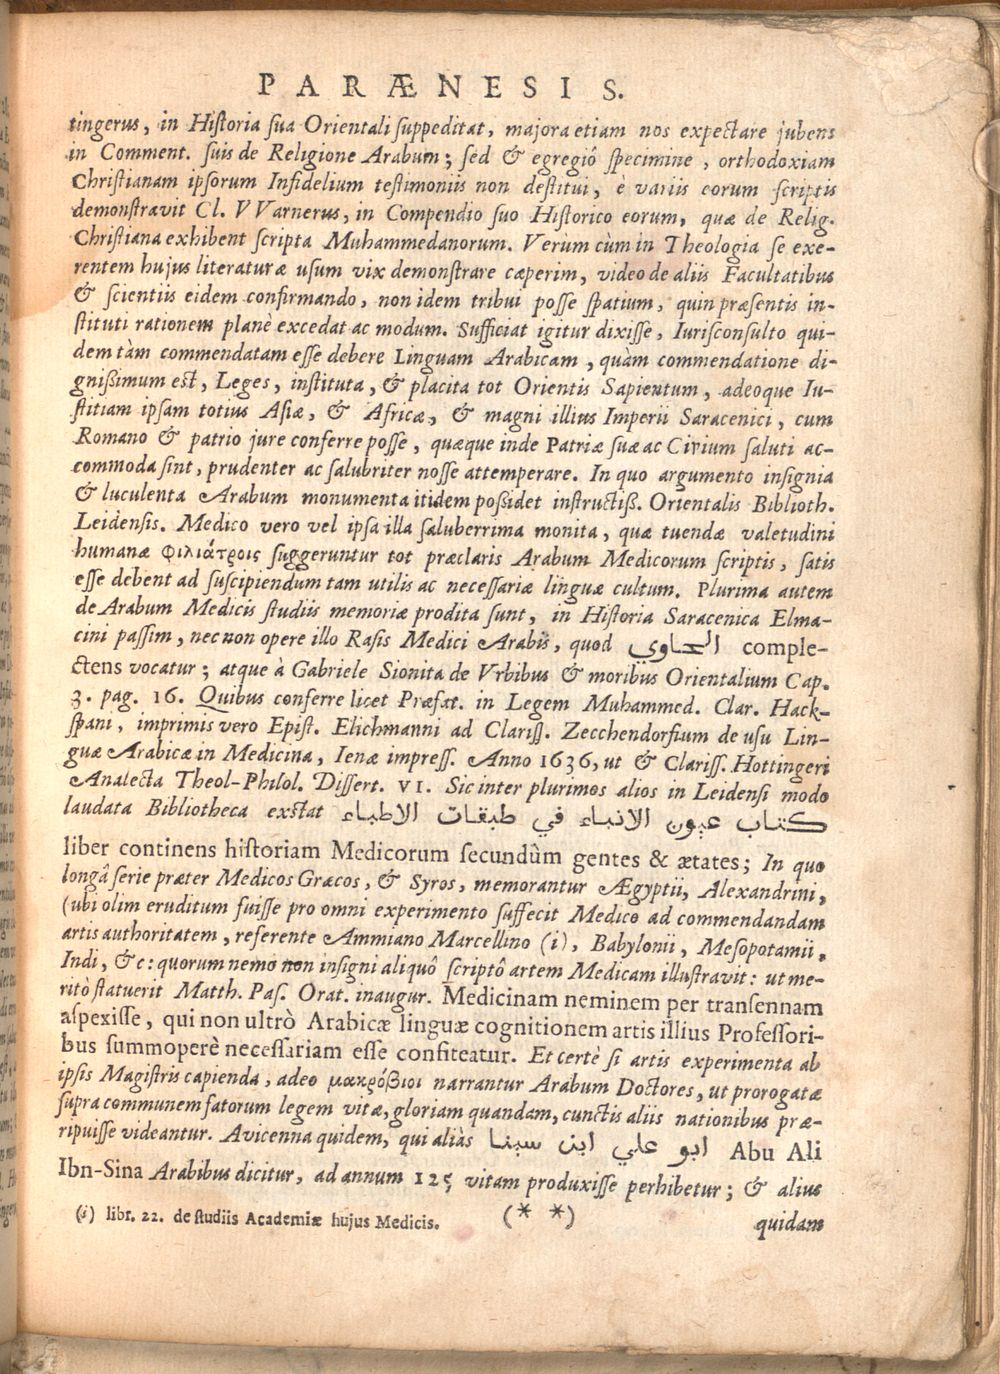 PARÆNESIS.
tingerus, in Historia sua Orientali suppeditat, majora etiam nos expectare jubens
in Comment. suis de Religione Arabum; sed & egregiô specimine, orthodoxiam
Christianam ipsorum Infidelium testimoniis non destitui, è variis eorum scriptis
demonstravit Cl. VVarnerus, in Compendio suo Historico eorum, quæ de Relig.
Christiana exhibent scripta Muhammedanorum. Verùm cùm in Theologia se exe-
rentem hujus literaturæ usum vix demonstrare cœperim, video de aliis Facultatibus
& scientiis eidem confirmando, non idem tribui posse spatium, quin præsentis in-
stituti rationem planè excedat ac modum. Sufficiat igitur dixisse, Iurisconsulto qui-
dem tàm commendatam esse debere Linguam Arabicam, quàm commendatione di-
gnißimum est, Leges, instituta, & placita tot Orientis Sapientum, adeoque Iu-
stitiam ipsam totius Asiæ, & Africæ, & magni illius Imperii Saracenici, cum
Romano & patrio jure conferre posse, quæque inde Patriæ suæ ac Civium saluti ac-
commoda sint, prudenter ac salubriter nosse attemperare. In quo argumento insignia
& luculenta Arabum monumenta itidem poßidet instructiß. Orientalis Biblioth.
Leidensis. Medico vero vel ipsa illa saluberrima monita, quæ tuendæ valetudini
humanæ Φιλιάτροις suggeruntur tot præclaris Arabum Medicorum scriptis, satis
esse debent ad suscipiendum tam utilis ac necessariæ linguæ cultum. Plurima autem
de Arabum Medicis studiis memoriæ prodita sunt, in Historia Saracenica Elma-
cini passim, nec non opere illo Rasis Medici Arabis, quod الحاوي comple-
ctens vocatur; atque à Gabriele Sionita de Vrbibus & moribus Orientalium Cap.
3. pag. 16. Quibus conferre licet Præfat. in Legem Muhammed. Clar. Hack-
spani, imprimis vero Epist. Elichmanni ad Clariss. Zecchendorfium de usu Lin-
guæ Arabicæ in Medicina, Ienæ impress. Anno 1636, ut & Clariss. Hottingeri
Analecta Theol-Philol. Dissert. VI. Sic inter plurimos alios in Leidensi modo
laudata Bibliotheca exstat كتاب عيون الانباء في طبقات الاطباء
liber continens historiam Medicorum secundùm gentes & ætates; In quo
longâ serie præter Medicos Græcos, & Syros, memorantur Ægyptii, Alexandrini,
(ubi olim eruditum fuisse pro omni experimento suffecit Medico ad commendandam
artis authoritatem, referente Ammiano Marcellino (i), Babylonii, Mesopotamii,
Indi, &c: quorum nemo non insigni aliquô scriptô artem Medicam illustravit: ut me-
ritò statuerit Matth. Pas. Orat. inaugur. Medicinam neminem per transennam
aspexisse, qui non ultrò Arabicæ linguæ cognitionem artis illius Professori-
bus summoperè necessariam esse confiteatur. Et certè si artis experimenta ab
ipsis Magistris capienda, adeo μακρόβιοι narrantur Arabum Doctores, ut prorogatæ
supra communem fatorum legem vitæ, gloriam quandam, cunctis aliis nationibus præ-
ripuisse videantur. Avicenna quidem, qui aliàs ابو علي ابن سينا Abu Ali
Ibn-Sina Arabibus dicitur, ad annum 125 vitam produxisse perhibetur; & alius
(i) libr. 22. de studiis Academiæ hujus Medicis. (* *) quidam